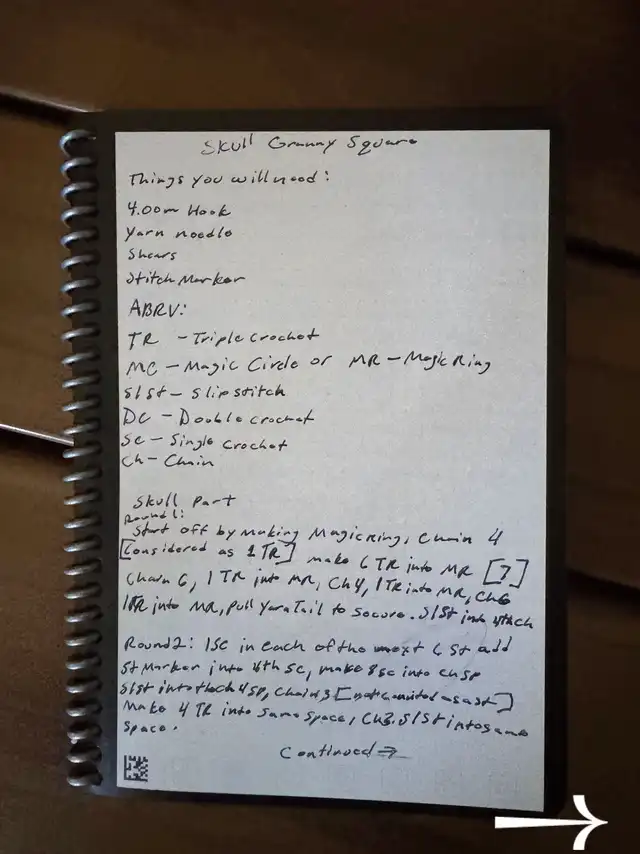 Skull Granny Square
Things you will need:
4.00m Hook
Yarn needle
Shears
Stitch Marker
ABRV:
TR - Triple Crochet
MC - Magic Circle or MR - Magic Ring
Slst - Slip stitch
DC - Double crochet
SC - Single Crochet
Ch - Chain
Skull Part
Round 1:
Start off by making Magic Ring, Chain 4
[Considered as 1 TR] make 6 TR into MR [7]
Chain 6, 1 TR into MR, Ch4, 1 TR into MR, Ch6
1TR into MR, Pull Yarn Tail to secure. Slst into 4th ch
Round 2: 1sc in each of the next 6 St add
St Marker into 4th sc, make 8 sc into Ch sp
Slst into the ch 4 sp, Chain 3 [not counted as a st]
Make 4 TR into same space, Ch3. Slst into same
Space.
Continued →